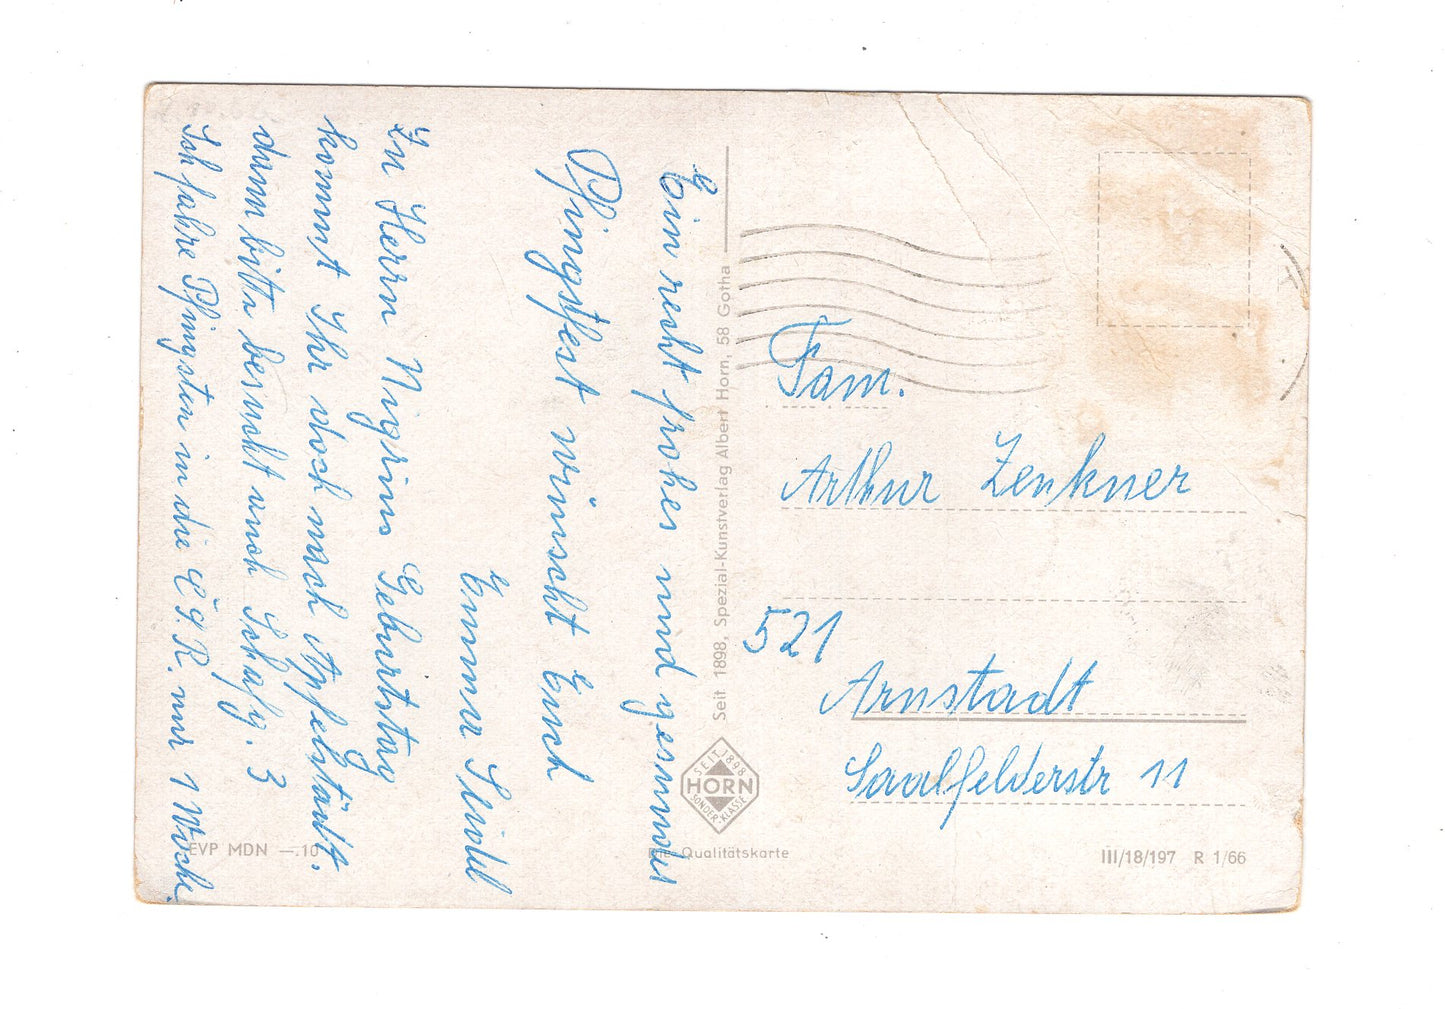 Ein recht frohes und gesundes
Pfingstfest wünscht Euch
Emma Seidel
Zu Herrn Nigrins Geburtstag
kommt Ihr doch nach Apfelstädt.
dann bitte besucht mich Schafg. 3
Ich fahre Pfingsten in die ČS.R. nur 1 Woche.
Seit 1898, Spezial-Kunstverlag Albert Horn, 58 Gotha
Fam.
Arthur Zenkner
521
Arnstadt
Saalfelderstr 11
SEIT 1898
HORN
SONDER-KLASSE
EVP MDN —.10
Die Qualitätskarte
III/18/197 R 1/66